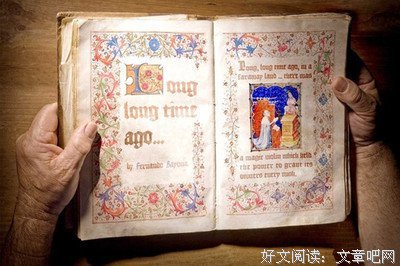 Long
long time
ago...
by Fernanda Payona
Long, long time ago, in a
faraway land ... there was
a magic violin which held
the power to grant its
owners every wish.
好文阅读：文章吧网